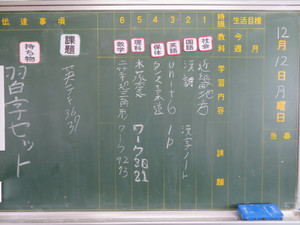 12月12日月曜日
日直
生活目標
今週
今月
時限 教科 学習内容 課題
1 社会 近畿地方
2 国語 漢詩 漢字ノート
3 英語 Unit6 1P
4 保体
5 理科 ワーク20 21
6 数学 二等辺三角形 ワーク92 93
伝達事項
課題
持ち物
習字セット